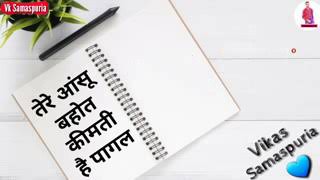 Vk Samaspuria
तेरे आंसू
बहोत
कीमती
है पागल
Vikas
Samaspuria